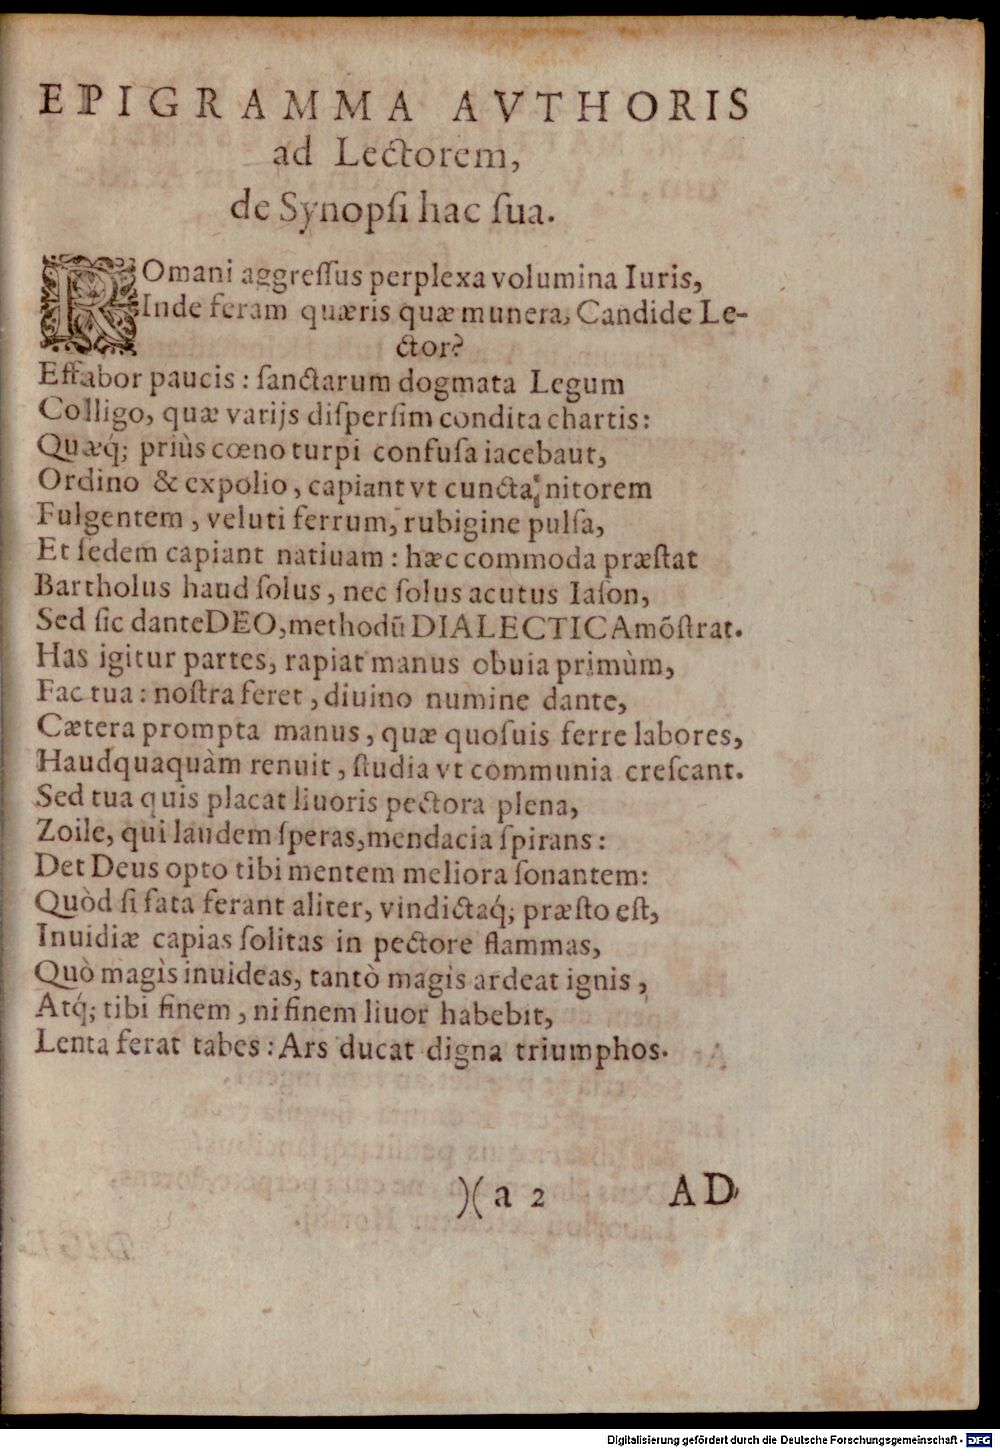 EPIGRAMMA AVTHORIS
ad Lectorem,
de Synopſi hac ſua.
ROmani aggreſſus perplexa volumina Iuris,
Inde feram quæris quæ munera, Candide Le-
ctor?
Effabor paucis: ſanctarum dogmata Legum
Colligo, quæ varijs diſperſim condita chartis:
Quæq́; priùs cœno turpi confuſa iacebaut,
Ordino & expolio, capiant vt cuncta nitorem
Fulgentem, veluti ferrum, rubigine pulſa,
Et ſedem capiant natiuam: hæc commoda præſtat
Bartholus haud ſolus, nec ſolus acutus Iaſon,
Sed ſic dante DEO, methodũ DIALECTICA mõſtrat.
Has igitur partes, rapiat manus obuia primùm,
Fac tua: noſtra feret, diuino numine dante,
Cætera prompta manus, quæ quoſuis ferre labores,
Haudquaquàm renuit, ſtudia vt communia creſcant.
Sed tua quis placat liuoris pectora plena,
Zoile, qui laudem ſperas, mendacia ſpirans:
Det Deus opto tibi mentem meliora ſonantem:
Quòd ſi fata ferant aliter, vindictaq́; præſto eſt,
Inuidiæ capias ſolitas in pectore flammas,
Quò magìs inuideas, tantò magìs ardeat ignis,
Atq́; tibi finem, ni finem liuor habebit,
Lenta ferat tabes: Ars ducat digna triumphos.
)( a 2 AD
Digitalisierung gefördert durch die Deutsche Forschungsgemeinschaft - DFG